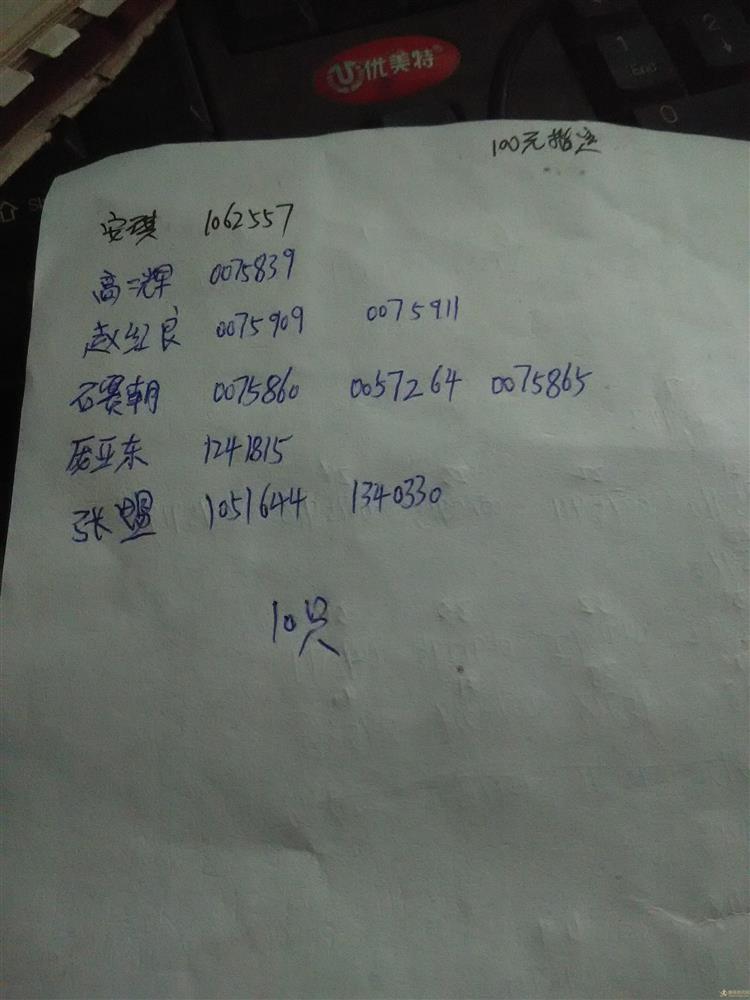 优美特
1
End
2
↓
0
100元指定
安琪 1062557
高三辉 0075839
赵红良 0075909 0075911
石赛朝 0075860 0057264 0075865
厉亚东 1241815
张盟 1051644 1340330
10只